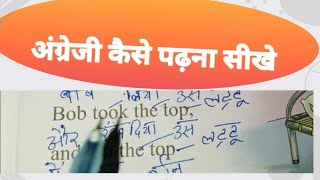 अंग्रेजी कैसे पढ़ना सीखे
बाब लिया उस लट्टू
Bob took the top,
और दिया उस लट्टू
and the top